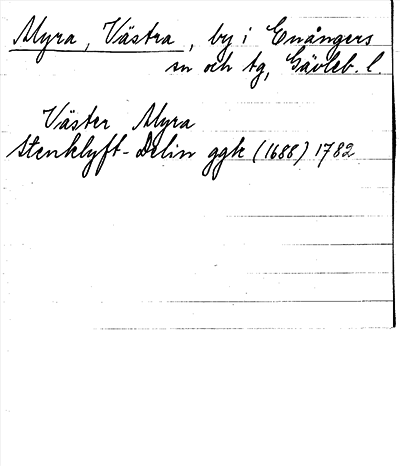 Myra, Västra, by i Enångers
sn och tg, Gävleb. l.
Väster Myra
Stenklyft-Delin ggk (1688) 1782